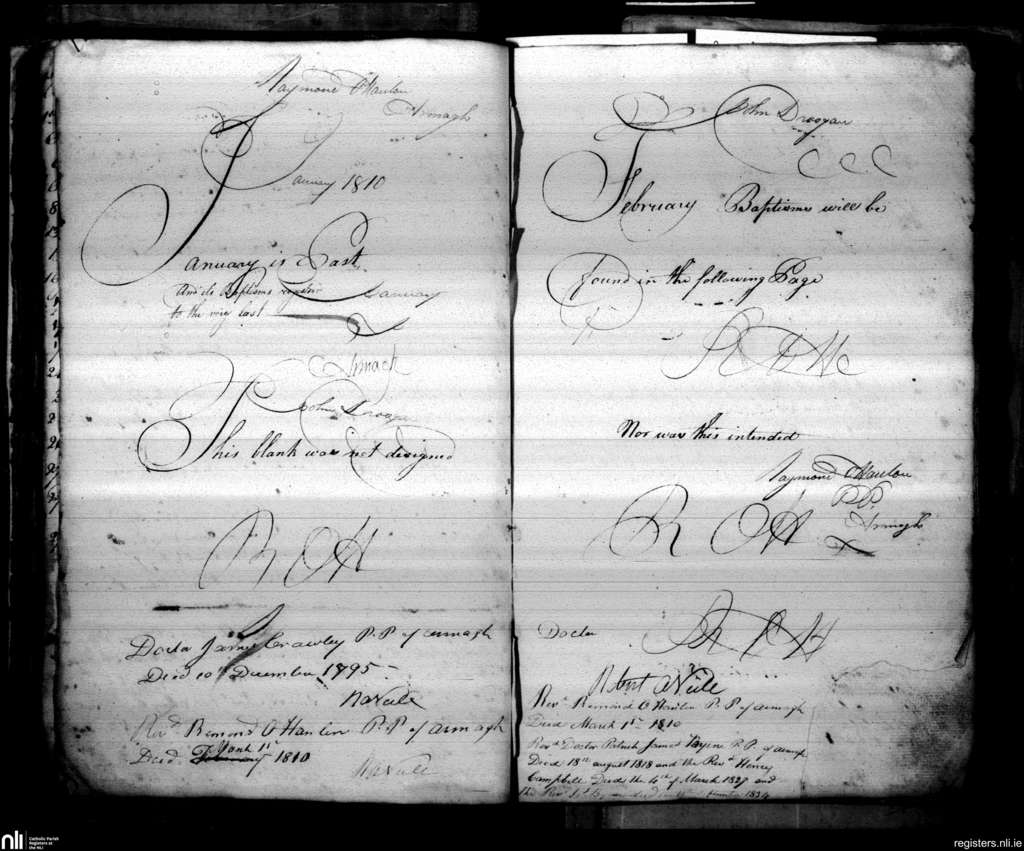 Raymond O'Hanlon
Armagh
January 1810
January is Past
And its Baptisms
January
to the very last
Armagh
John Droogan
This blank was not designed
R O H
Doctor James Crawley P. P. of armagh
Died 10th December 1795 –
R O'Neile
Revd Remond O Hanlon P. P. of armagh
Died 1st 1810
R O'Neile
John Droogan
C C C
February Baptisms will be
found in the following Page
R O Ha
Nor was this intended
Raymond O'Hanlon
P P.
Armagh
R O H
Doctor R O H
Robert O'Neile
Revd Remond O Hanlon P. P. of armagh
Died March 1st 1810
Revd Doctor Patrick James Byrne P. P. of armagh
Died 18th august 1818 and the Revd Henry
Campbell Died the 4th of March 1827 and
the Revd died 1834
nli
Catholic Parish
Registers at
the NLI
registers.nli.ie